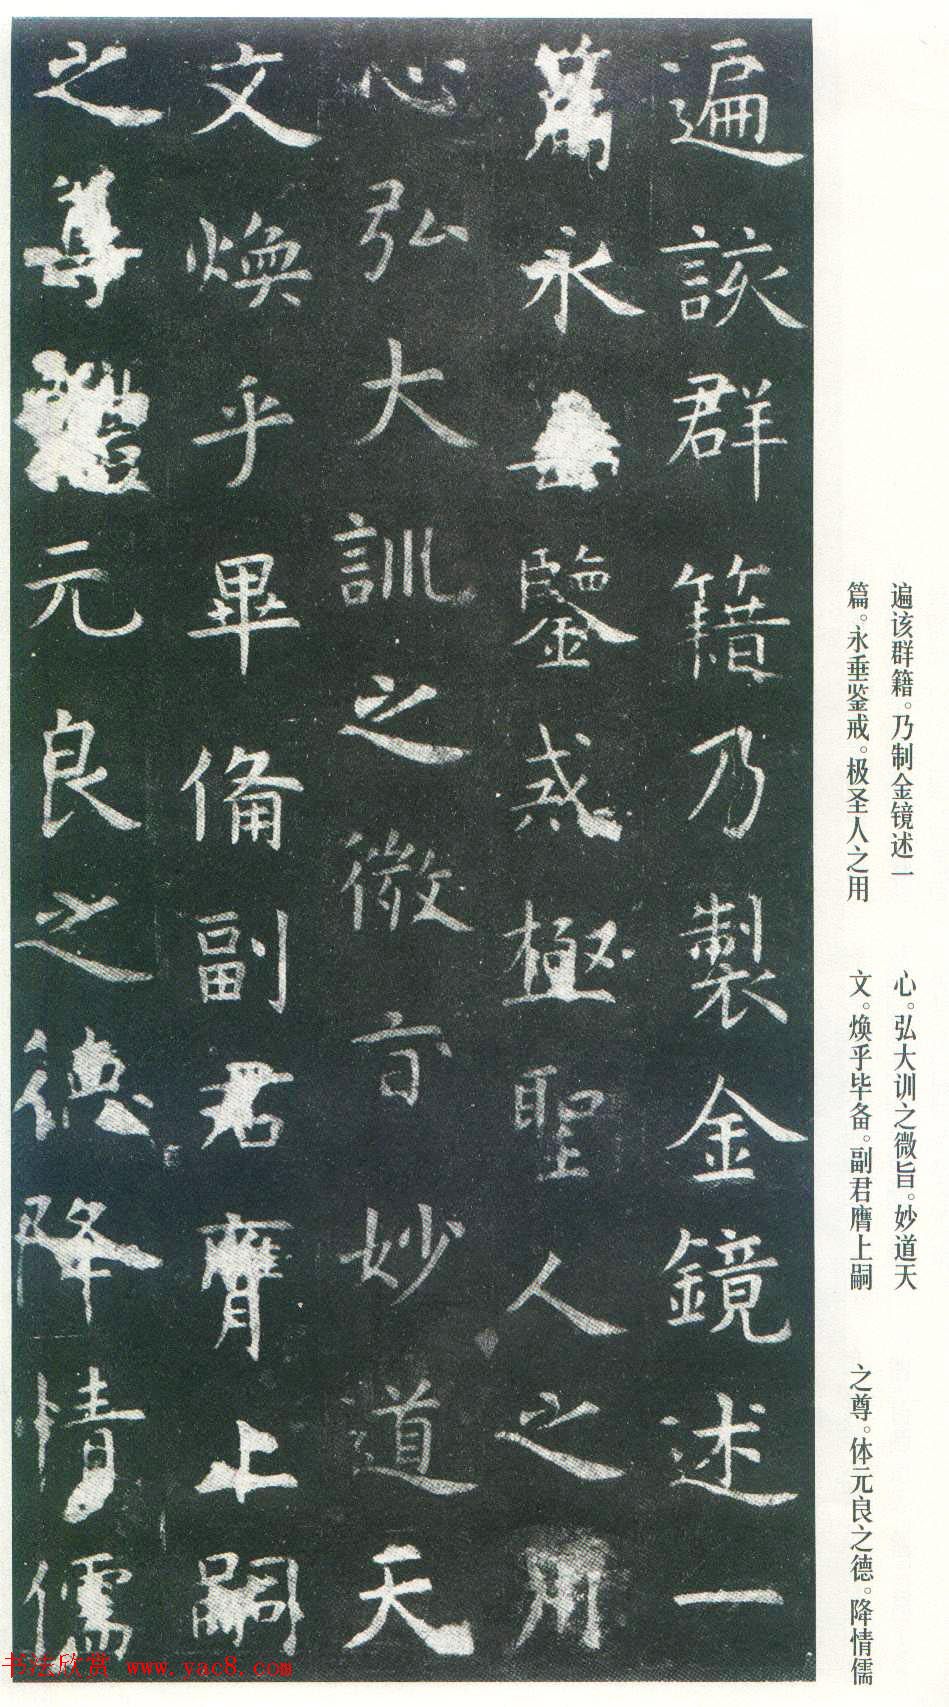 遍該群籍乃製金鏡述一
篇永垂鑒戒極聖人之用
心弘大訓之微旨妙道天
文煥乎畢備副君膺上嗣
之尊體元良之德降情儒
遍该群籍。乃制金镜述一
篇。永垂鉴戒。极圣人之用
心。弘大训之微旨。妙道天
文。焕乎毕备。副君膺上嗣
之尊。体元良之德。降情儒
书法欣赏 www.yac8.com